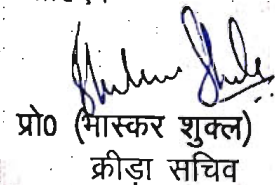 प्रो0 (भास्कर शुक्ल)
क्रीड़ा सचिव